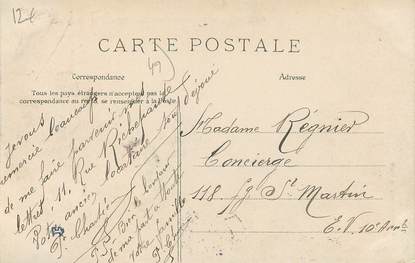 12€
49
CARTE POSTALE
Correspondance
Adresse
Tous les pays étrangers n'acceptent pas la
correspondance au recto, se renseigner à la Poste
Je vous
remercie beaucoup
de me faire parvenir mes
lettres 11, Rue
Votre ancien locataire
P. S. Bien le bonjour
de ma part à toute
votre famille
Madame Régnier
Concierge
118 fg St Martin
E. V. 10e Arrt